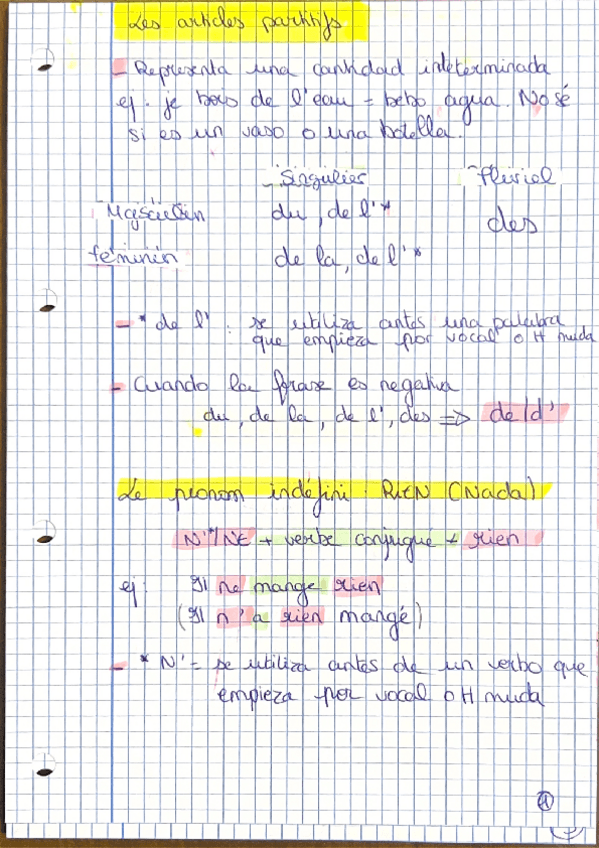 Les articles partitifs
- Representa una cantidad indeterminada
ej. je bois de l'eau = bebo agua. No sé
si es un vaso o una botella.
Singulier Pluriel
Masculin du, de l'* des
féminin de la, de l'*
- * de l' : se utiliza antes una palabra
que empieza por vocal o H muda
- Cuando la frase es negativa
du, de la, de l', des => de/d'
Le pronom indéfini : RIEN (Nada)
N'*/NE + verbe conjugue + rien
ej: Il ne mange rien
(Il n'a rien mangé)
- * N' = se utiliza antes de un verbo que
empieza por vocal o H muda
1